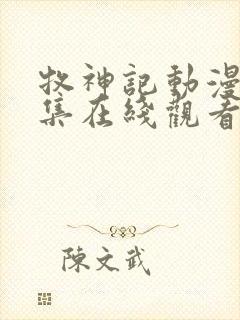 牧神記動漫
集在綫觀看
陳文武